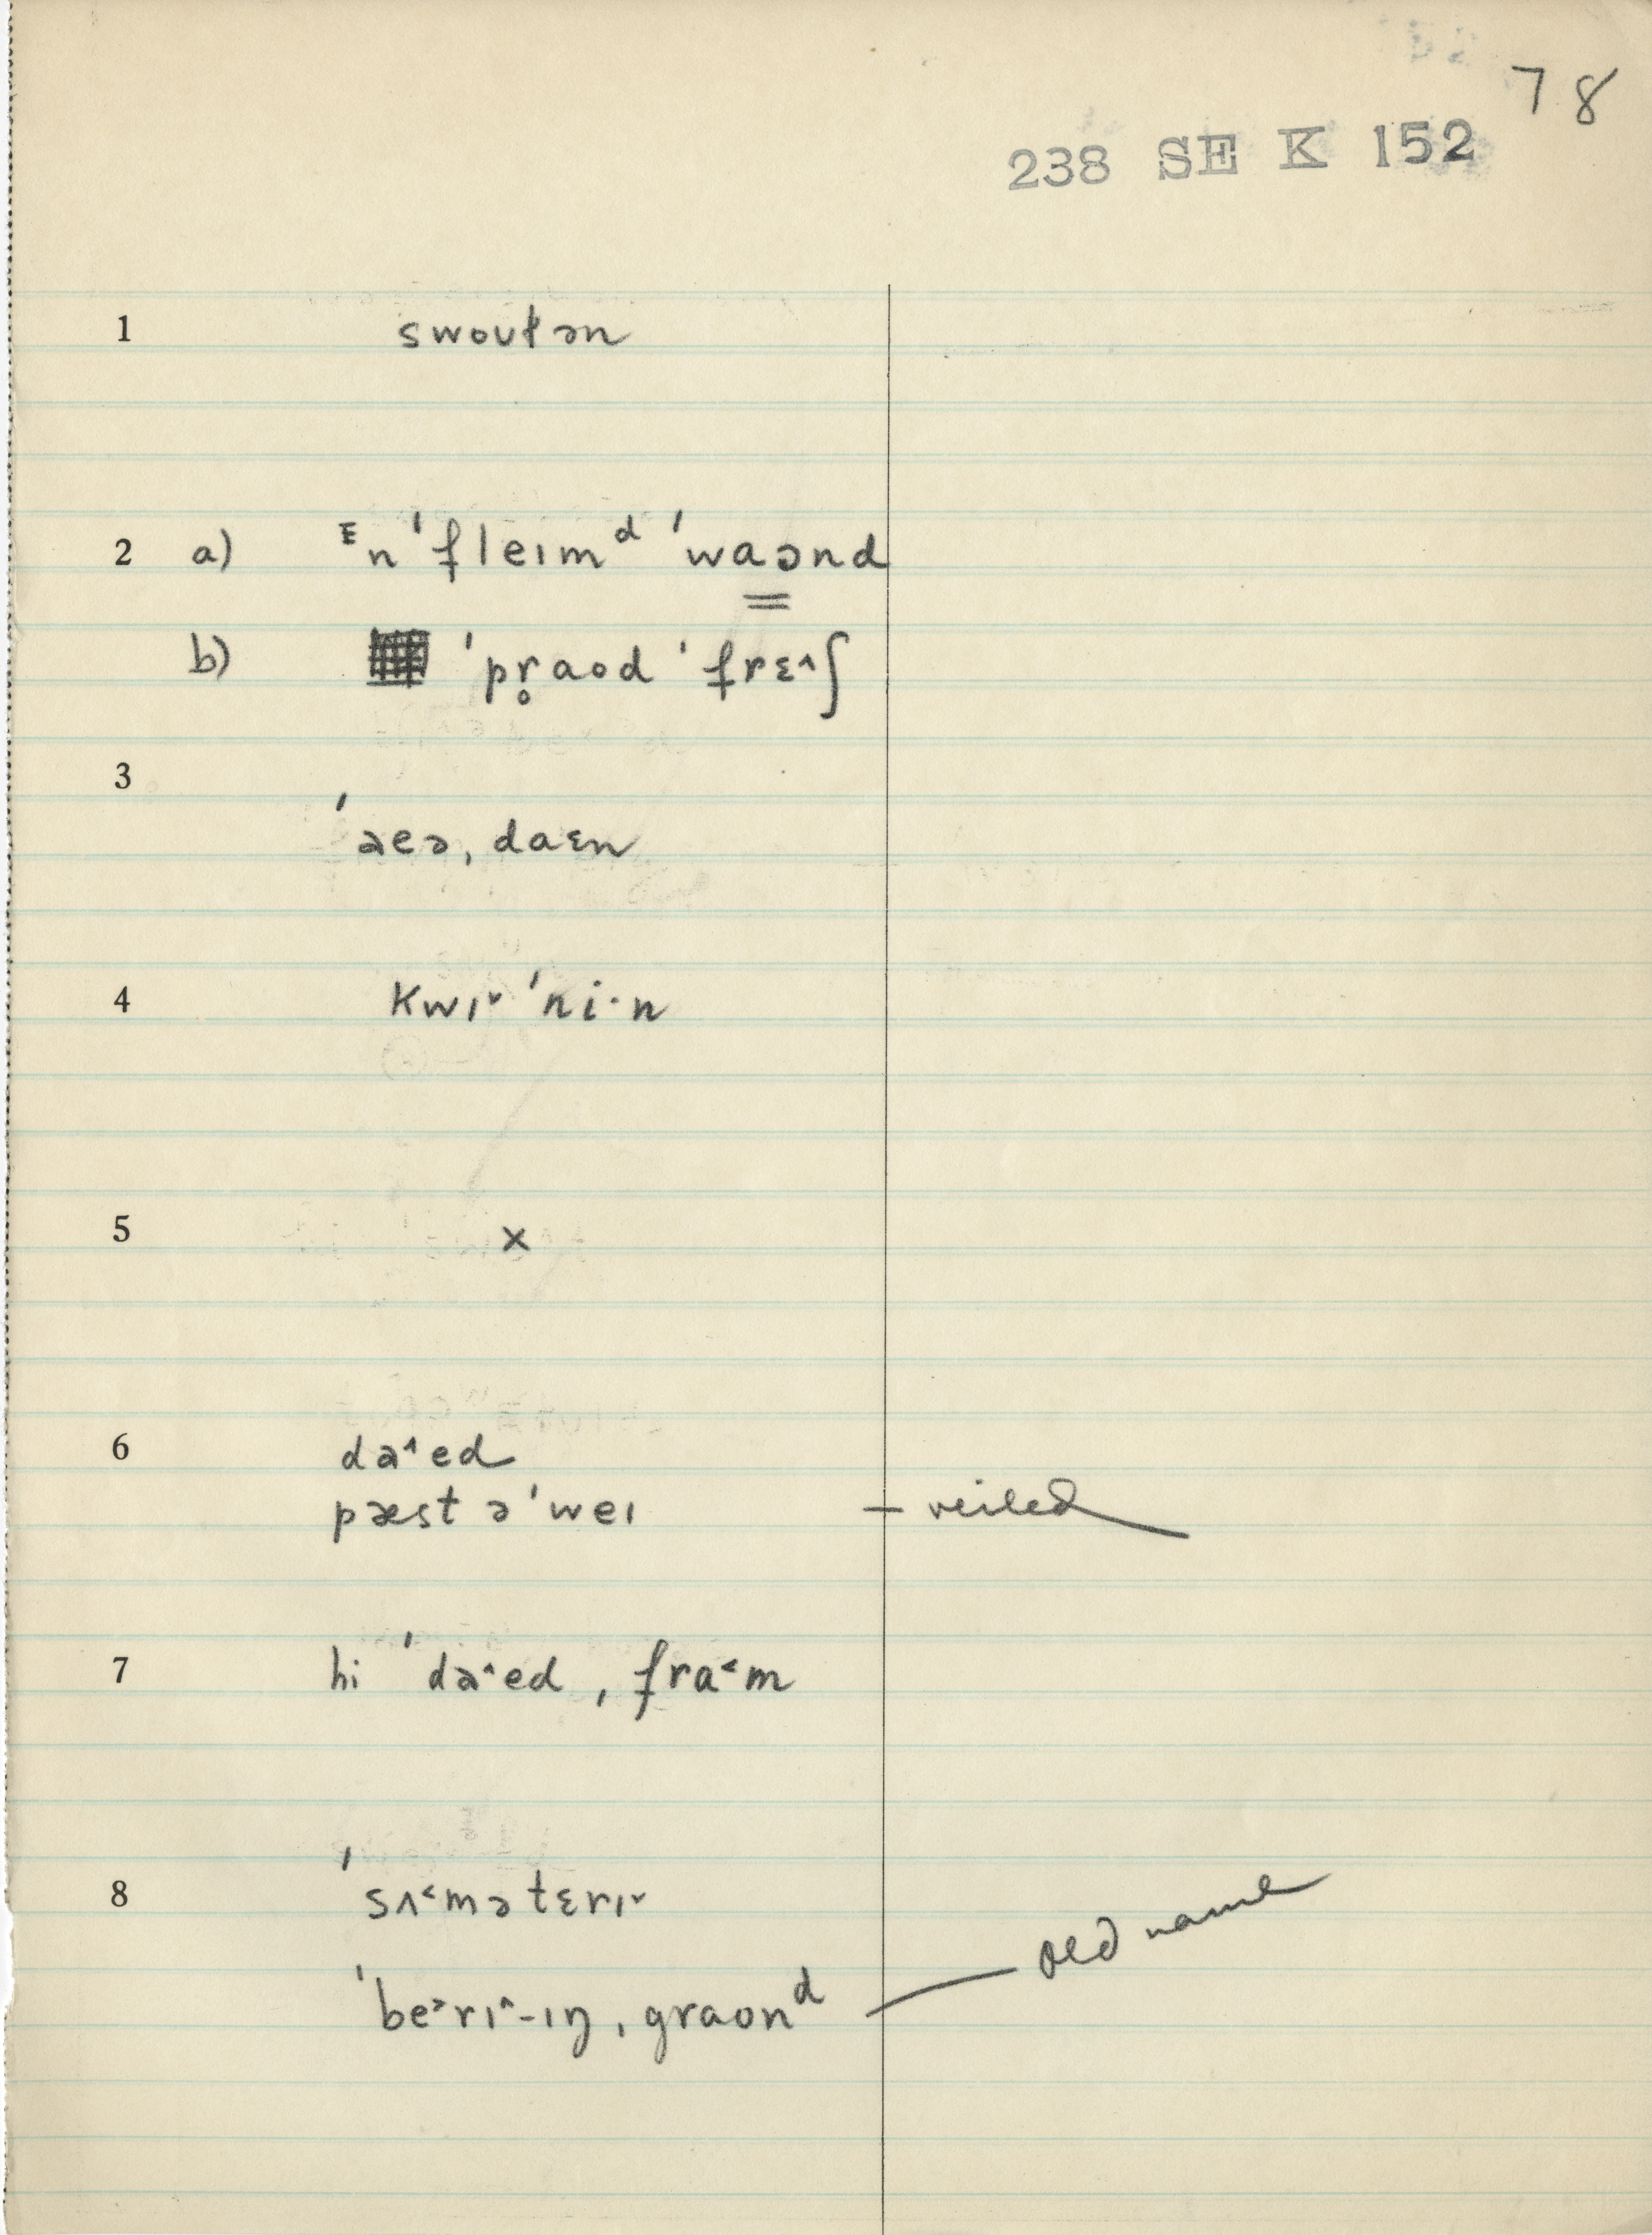 78
238 SE K 152
1 swoʊɫən
2 a) ᴱn ˈfleɪmᵈ ˈwaʊnd
b) ˈpr̥aod ˈfrɛ˄ʃ
3 ˈaeə, daɛn
4 kwɪ˅ ˈni·n
5 x
6 da˄ed
pæst əˈweɪ – veiled
7 hi ˈda˄ed ˌfrɑ˂m
8 ˈsʌ˂mətɛrɪ˅
ˈbe˃rɪ˄-ɪŋ ˌgraonᵈ — old name